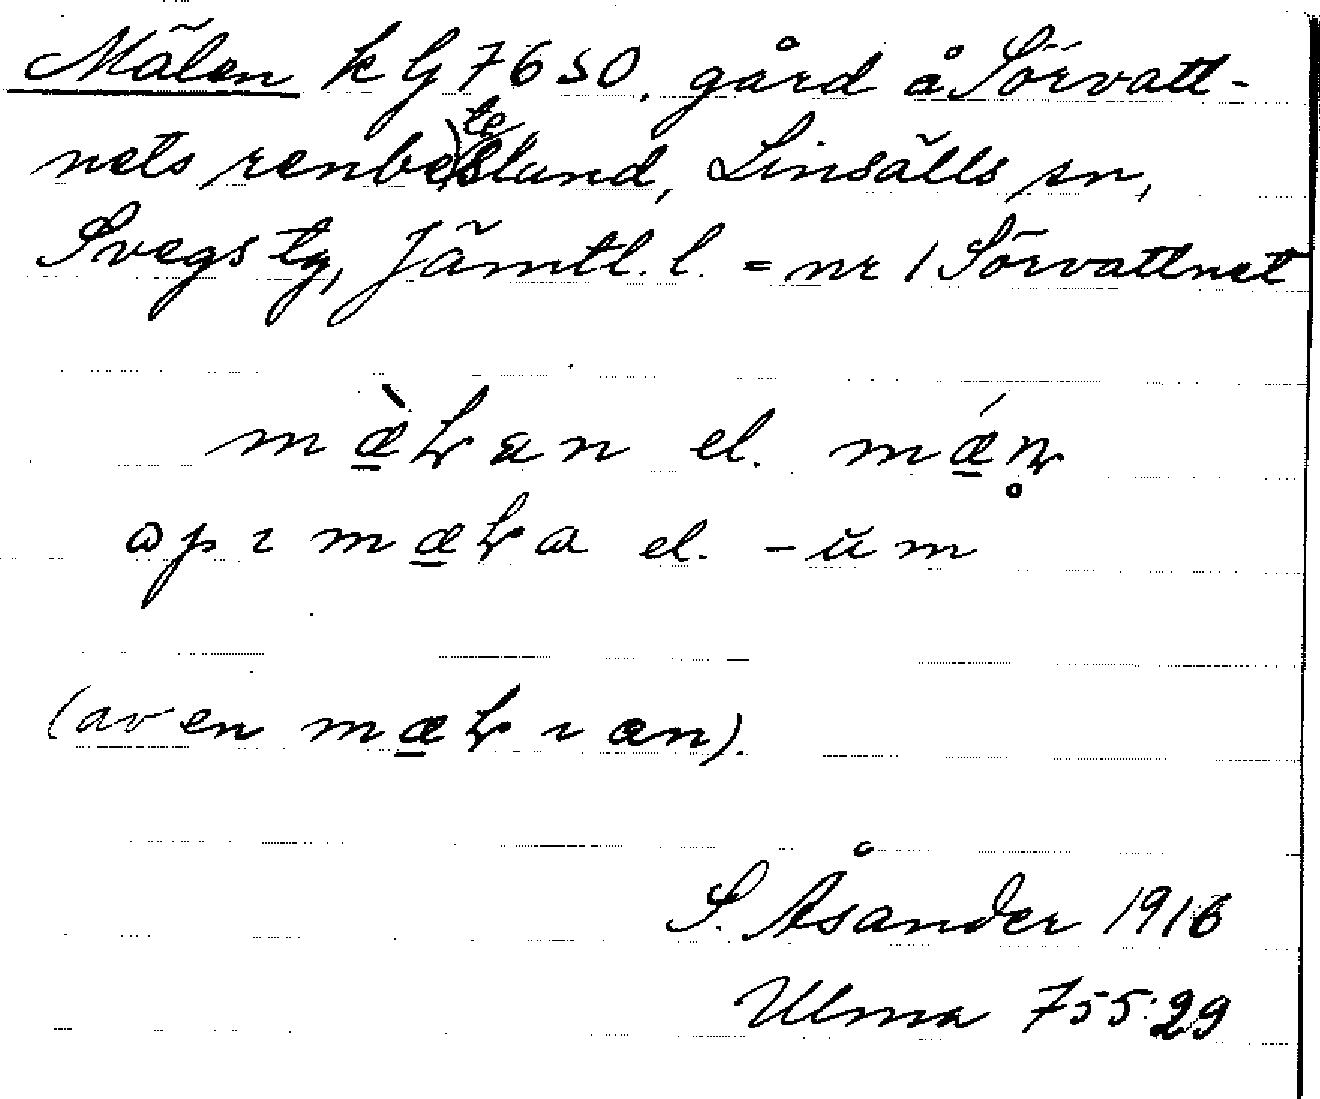 Mälen k G 7650. gård å Sörvatt-
nets renbetesland, Linsälls sn,
Svegs tg, Jämtl. l. = nr 1 Sörvattnet
mæ̱̀ɽæn el. mǽ̱ɳ̥
ɷpı mæ̱ɽa el. -ŭm
(av en mæ̱ɽ ı an).
S. Åsander 1916
Ulma 755:29